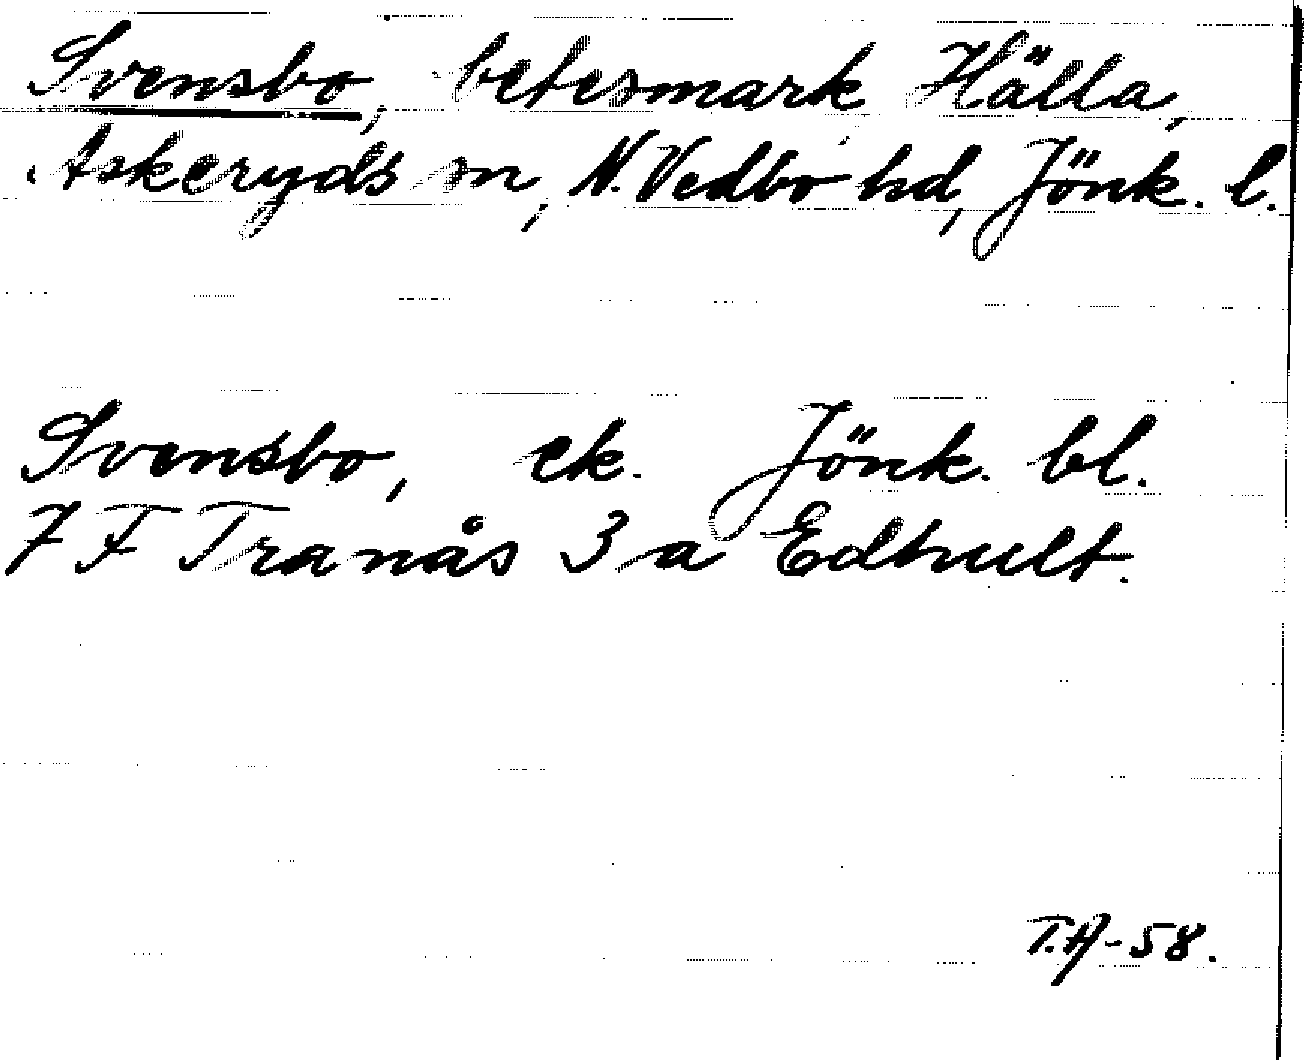 Svensbo, betesmark Hälla,
Askeryds sn, N. Vedbo hd, Jönk. l.
Svensbo, ek. Jönk. bl.
7 F Tranås 3 a Edhult.
T.A-58.